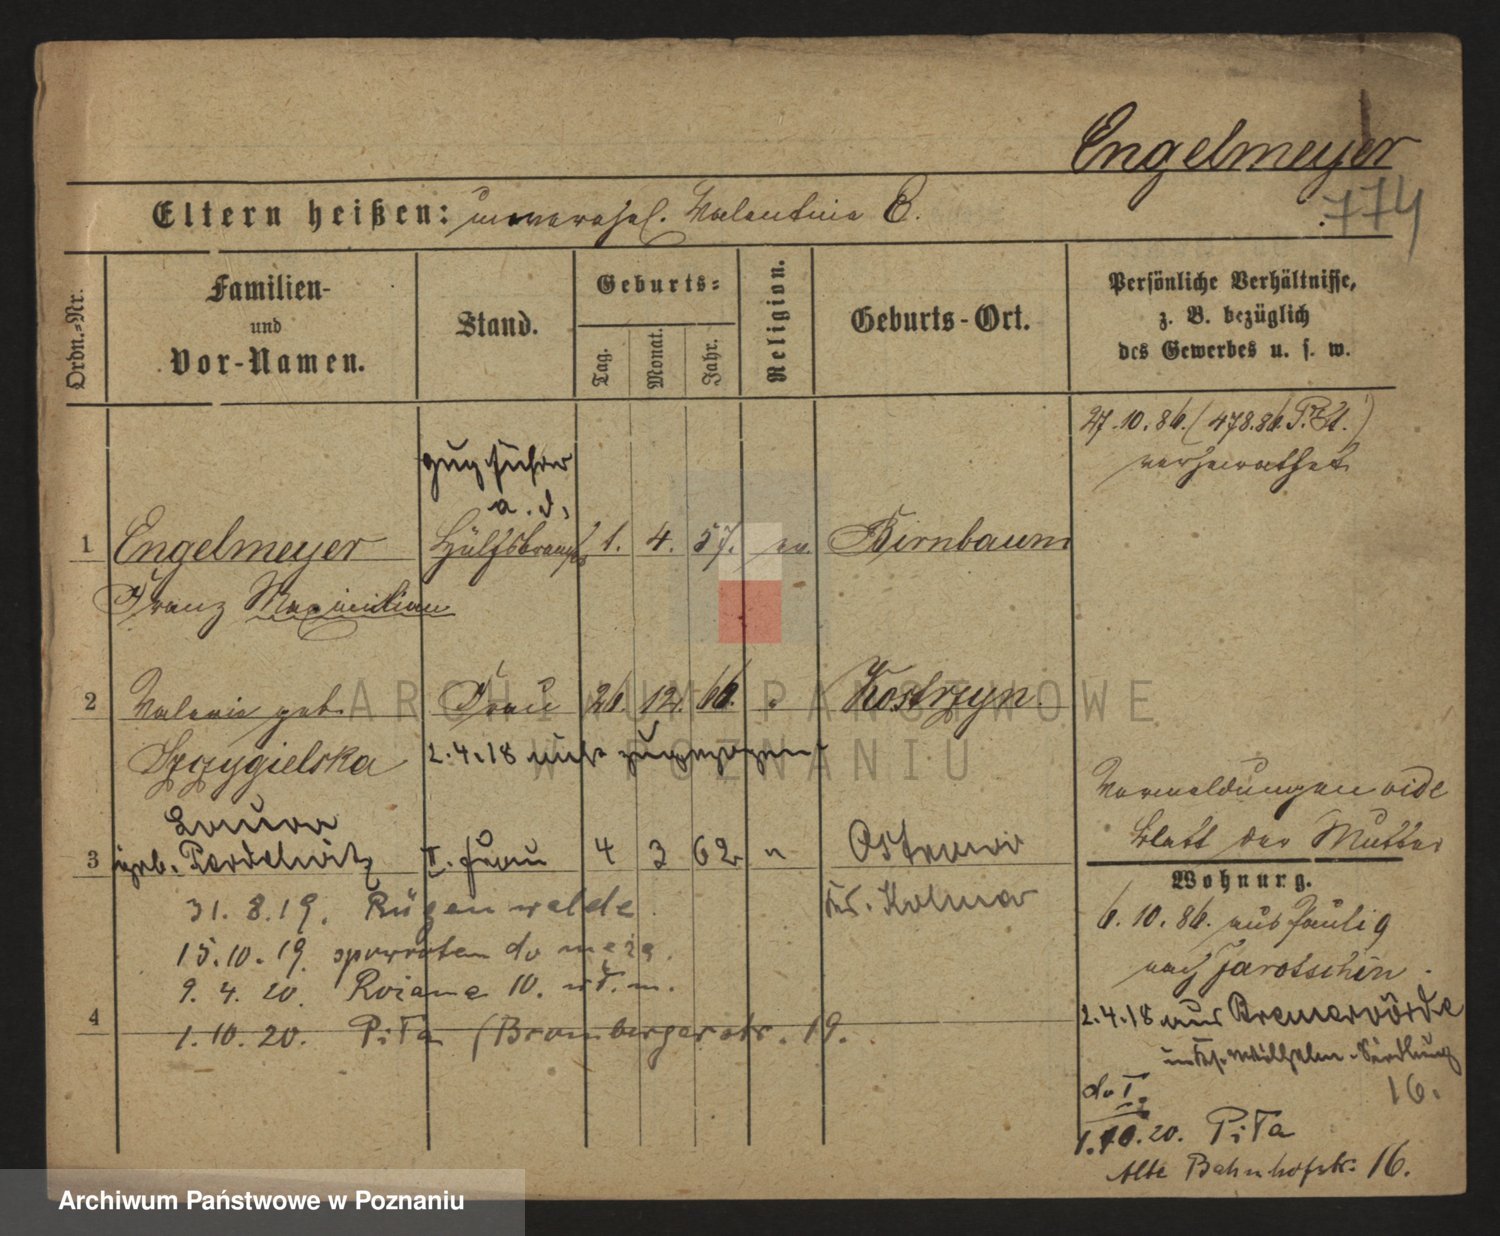 Engelmeyer
774
Eltern heißen: unverehel. Valentine E.
Ordn.-Nr.
Familien-
und
Vor-Namen.
Stand.
Geburts-
Tag.
Monat.
Jahr.
Religion.
Geburts-Ort.
Persönliche Verhältnisse,
z. B. bezüglich
des Gewerbes u. s. w.
27.10.86. (478.86.
verheirathet
Zugführer
a. D.
1 Engelmeyer Hülfsbrems 1. 4. 57. ev. Birnbaum
Franz Maximilian
2 Valerie geb. Frau 26. 12. 66. Kostrzyn.
Szczygielska 2.4.18 nicht zugezogen
Vermeldungen vide
Blatt der Mutter
3 geb. II. Frau 4 3 62 " Ostrowi
Krs. Kolmar
Wohnung.
6.10.86. aus
nach Jarotschin.
31.8.19. Rügenwalde
15.10.19. do męża.
9.4.20. 10.
4
1.10.20. Piła (Brombergerstr. 19.
2.4.18 aus Bremervörde
Wilhelm-Siedlung
16.
do
1.10.20. Piła
Alte Bahnhofstr. 16.
ARCHIWUM PAŃSTWOWE
W POZNANIU
Archiwum Państwowe w Poznaniu